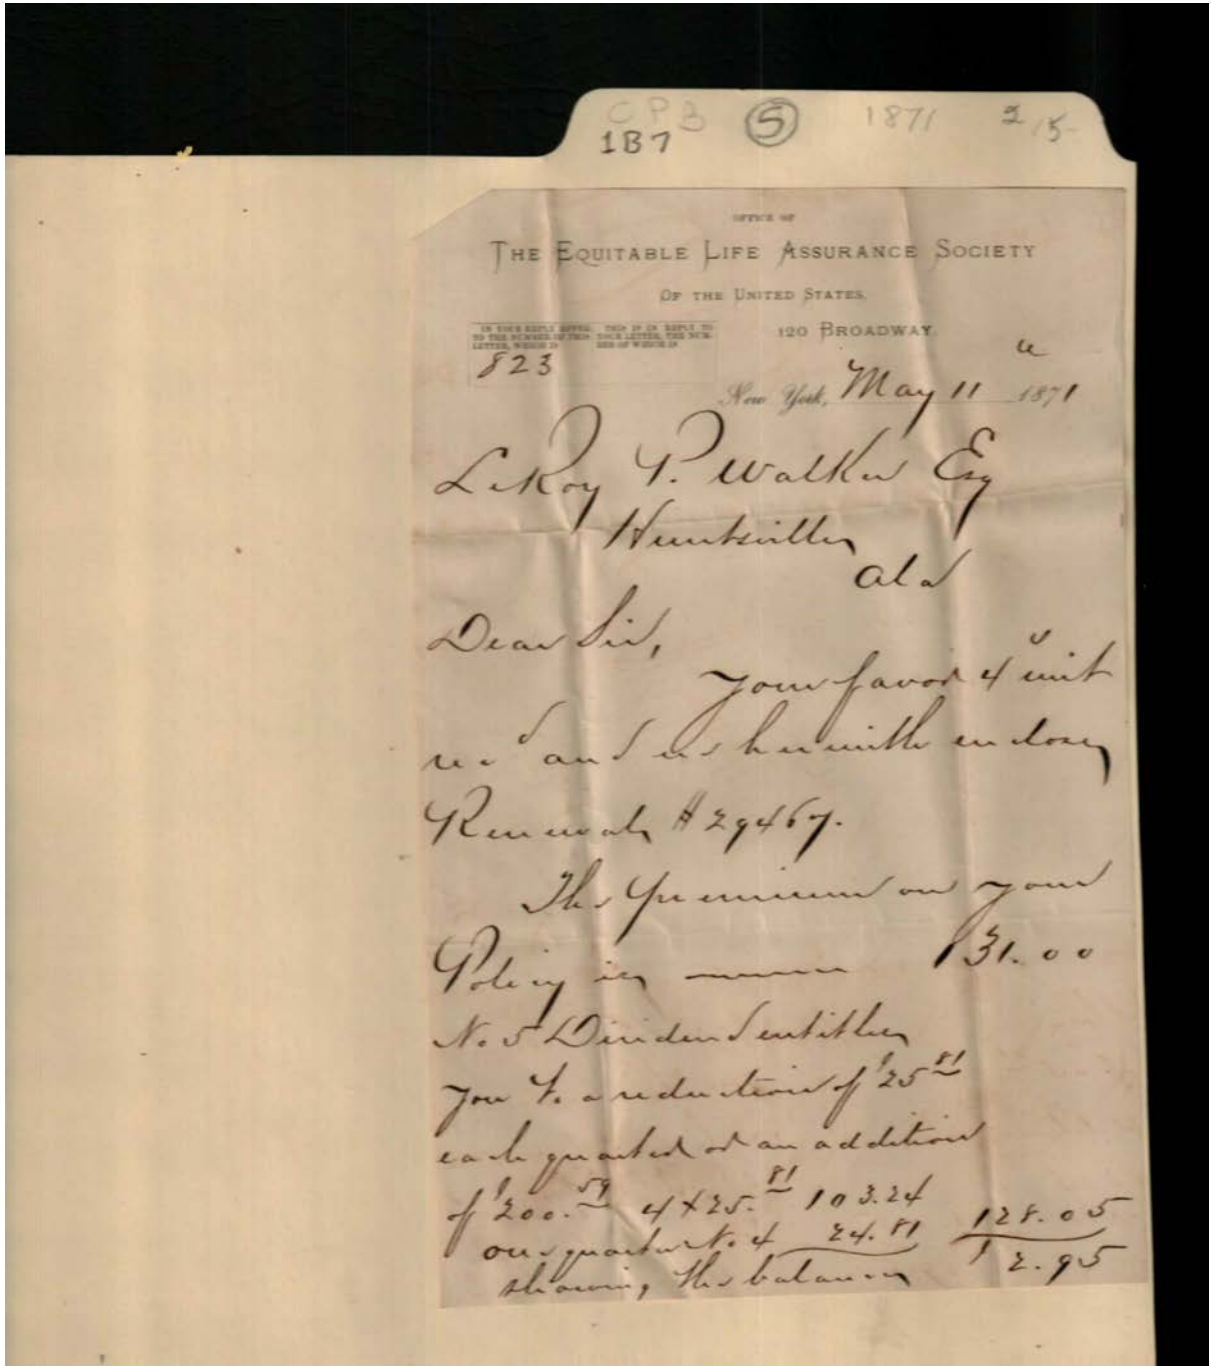 CPB (5) 1871 2/5
1B7
OFFICE OF
THE EQUITABLE LIFE ASSURANCE SOCIETY
OF THE UNITED STATES,
120 BROADWAY.
IN YOUR REPLY REFER TO THE NUMBER OF THIS LETTER, WHICH IS
THIS IS IN REPLY TO YOUR LETTER, THE NUMBER OF WHICH IS
823
New York, May 11 1871
LeRoy P. Walker Esq
Huntsville,
Ala
Dear Sir,
Your favor 4 inst
rec'd and as herewith enclose
Renewal, # 29467.
The premium on your
Policy is $131.00
No 5 Dividend entitles
you to a reduction of $25 81
each quarter or an addition
of $200. 59 4 x 25. 81 103.24
one quarter No. 4 24.81 128.05
showing the balance $2.95